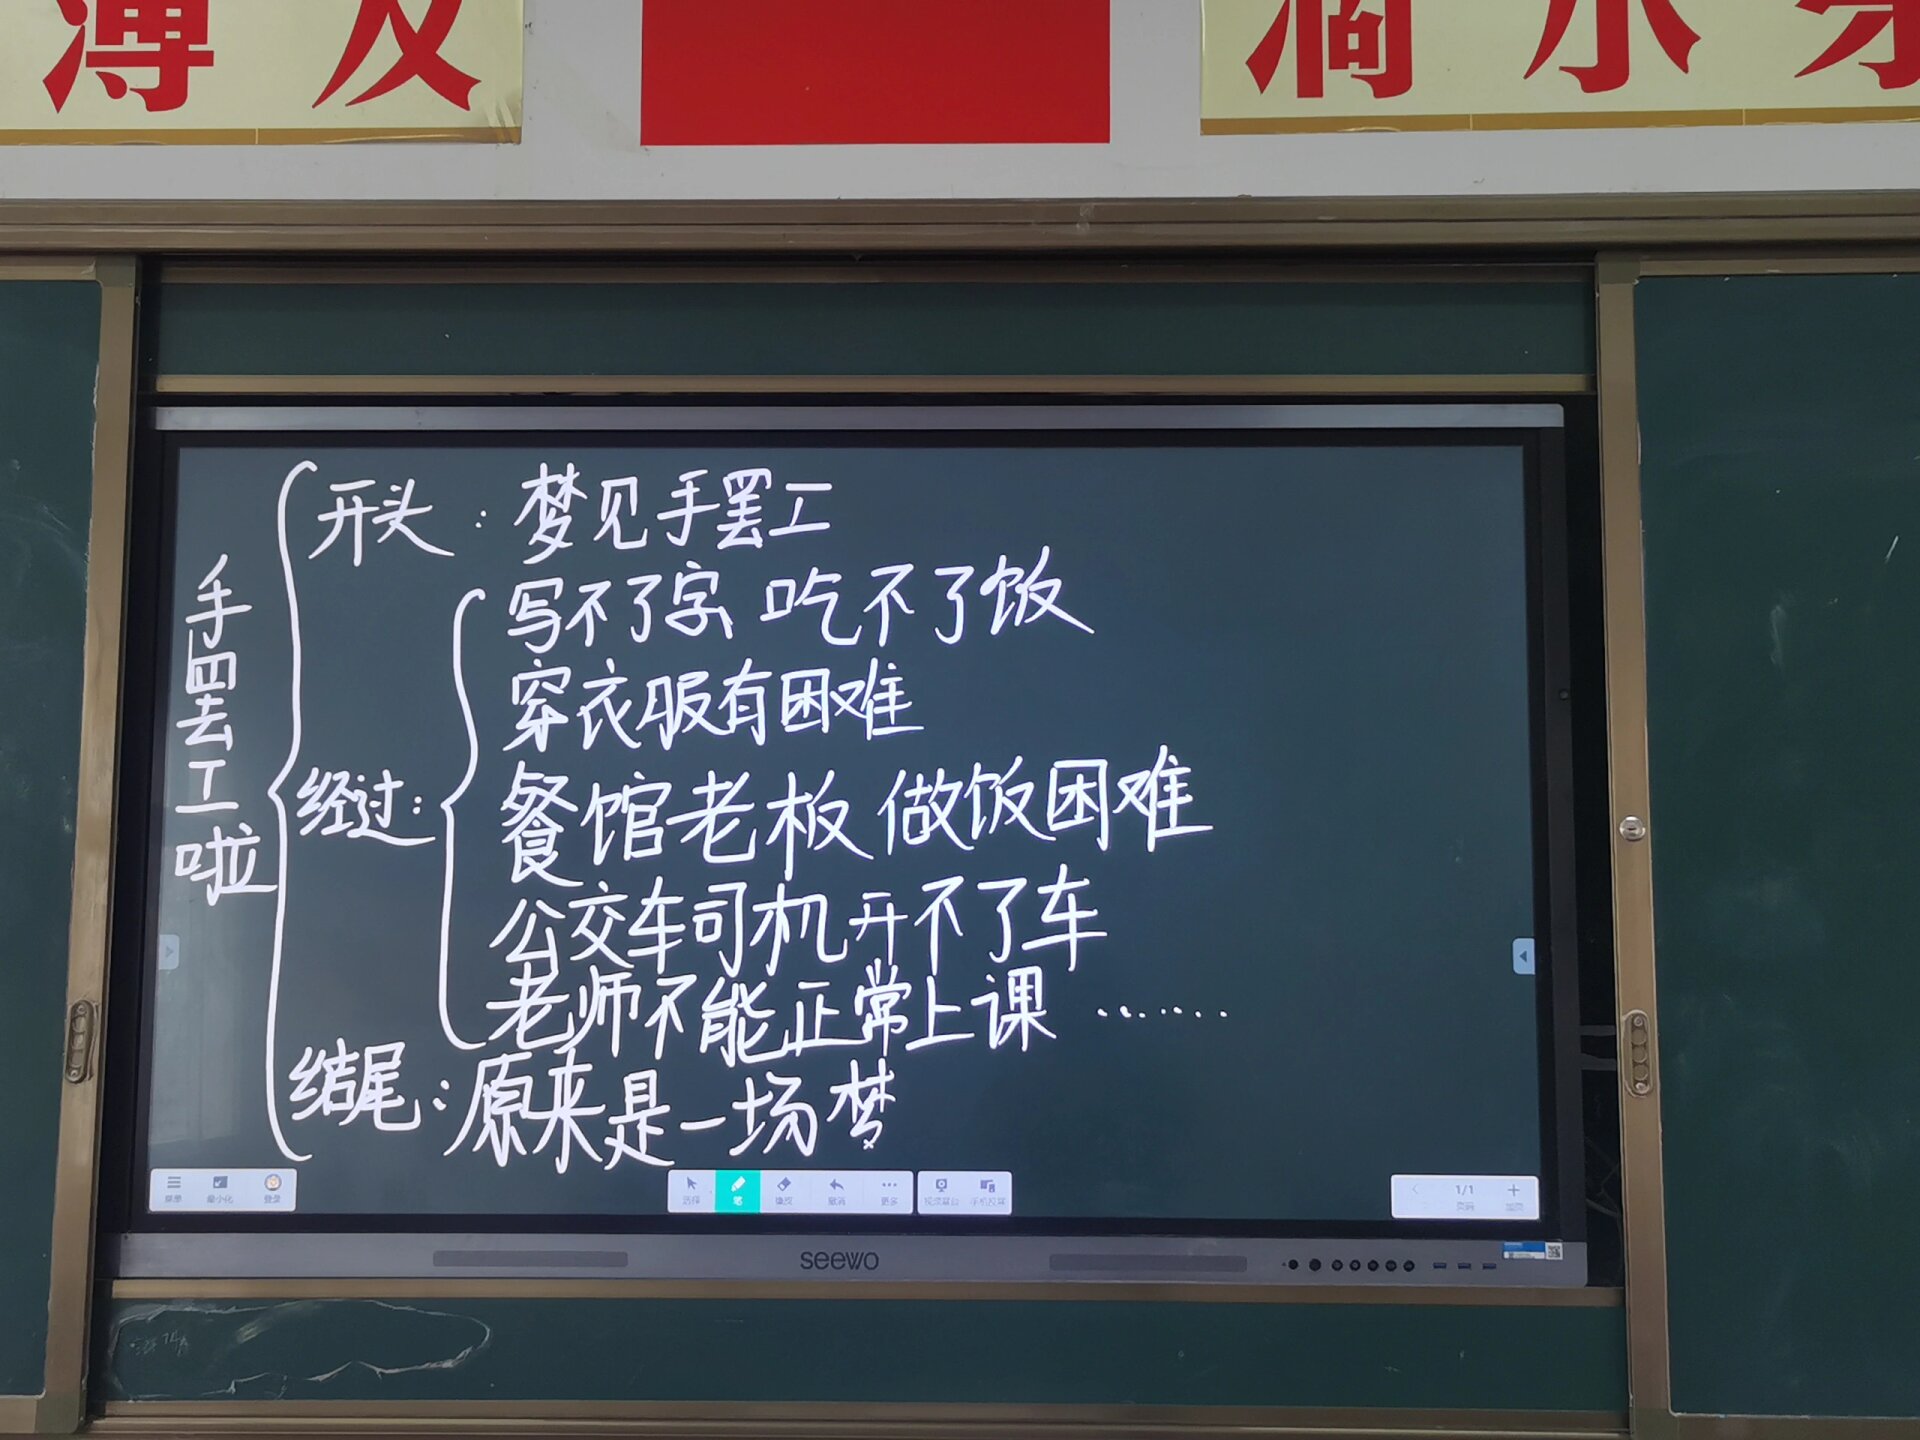 薄 发
滴 水 穿
手罢工啦
开头：梦见手罢工
经过：
写不了字 吃不了饭
穿衣服有困难
餐馆老板 做饭困难
公交车司机开不了车
老师不能正常上课 ……
结尾：原来是一场梦
菜单 最小化 登录
选择 笔 橡皮 撤消 更多
视频展台 手机投屏
1/1
seewo